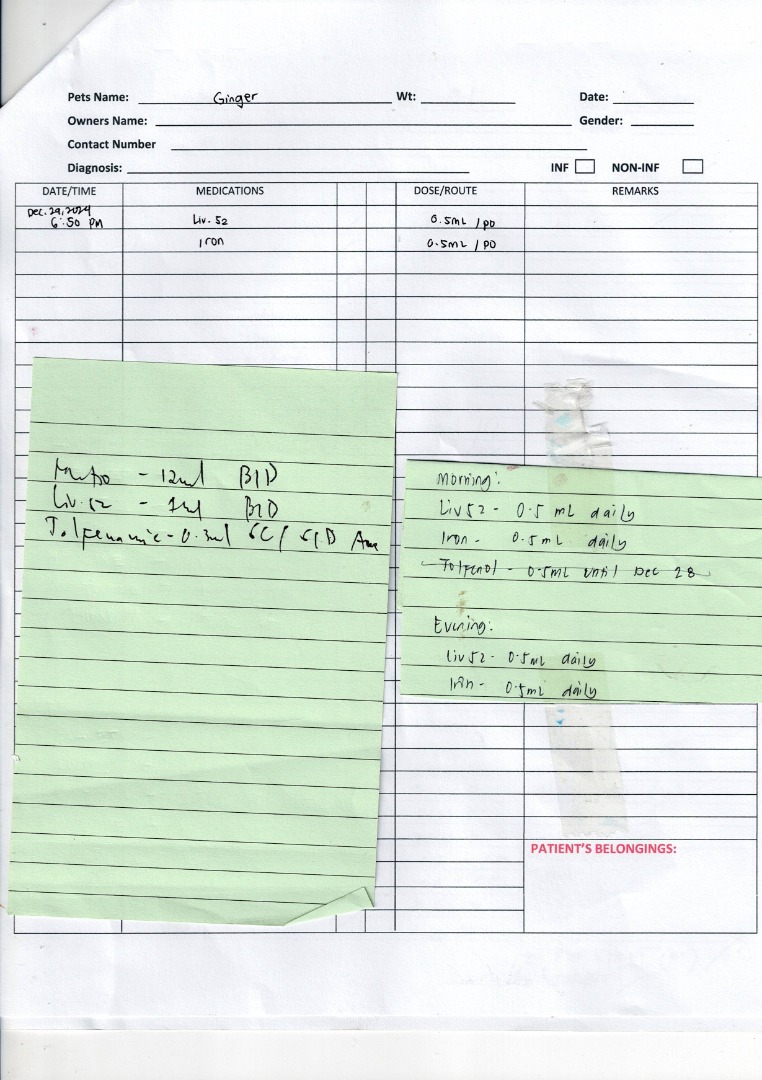 Pets Name: Ginger Wt: Date:
Owners Name: Gender:
Contact Number
Diagnosis: INF NON-INF
DATE/TIME MEDICATIONS DOSE/ROUTE REMARKS
Dec. 29, 2024
6:50 PM Liv. 52 0.5mL / PO
Iron 0.5mL / PO
- 12ml BID
Liv. 52 - 1ml BID
Tolfenamic - 0.3ml SC / SID
Morning:
Liv52 - 0.5 mL daily
Iron - 0.5mL daily
Tolfenol - 0.5mL until Dec 28
Evening:
Liv52 - 0.5mL daily
Iron - 0.5mL daily
PATIENT'S BELONGINGS: